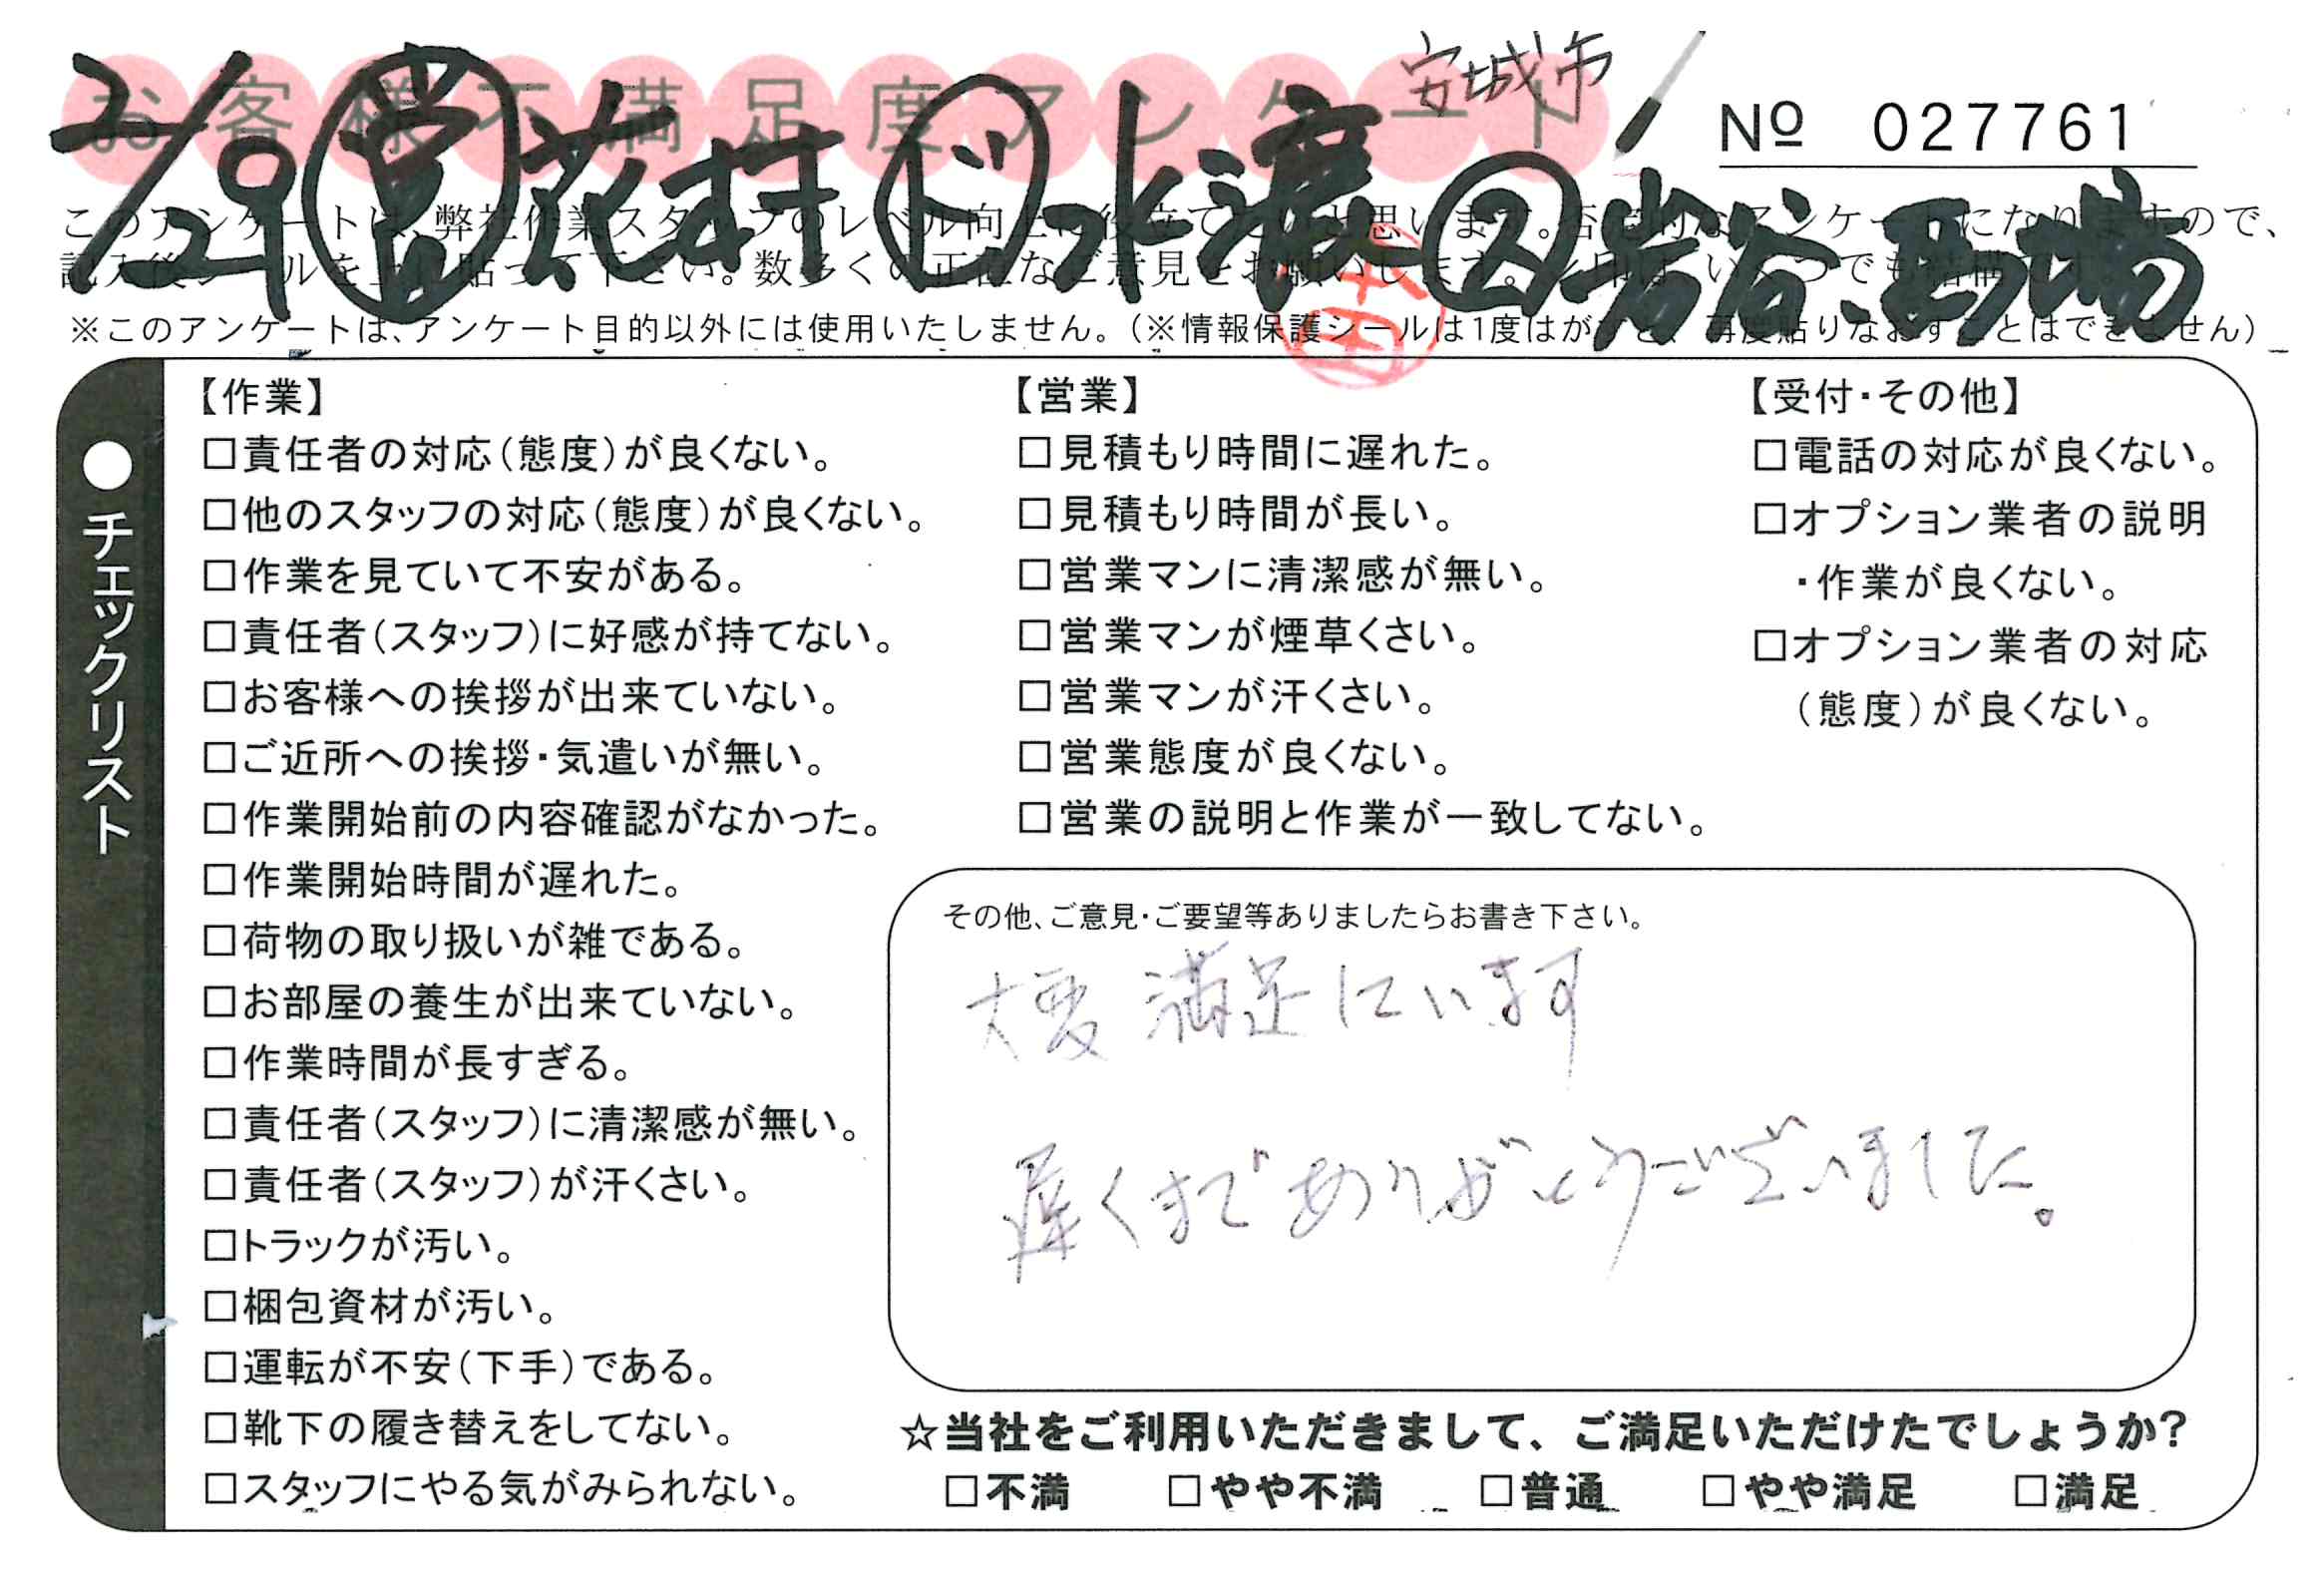 安城市
お客様不満足度アンケート
№ 027761
2/29 営 花村 ド 水濃 2 岩谷、馬場
このアンケートは、弊社作業スタッフのレベル向上に役立て 思います。否定的なアンケートになりますので、
記入後シールを上に貼って下さい。数多くの正直なご意見をお願いします。
※このアンケートは、アンケート目的以外には使用いたしません。(※情報保護シールは1度はがすと、再度貼りなおすことはできません)
●チェックリスト
【作業】
□責任者の対応(態度)が良くない。
□他のスタッフの対応(態度)が良くない。
□作業を見ていて不安がある。
□責任者(スタッフ)に好感が持てない。
□お客様への挨拶が出来ていない。
□ご近所への挨拶・気遣いが無い。
□作業開始前の内容確認がなかった。
□作業開始時間が遅れた。
□荷物の取り扱いが雑である。
□お部屋の養生が出来ていない。
□作業時間が長すぎる。
□責任者(スタッフ)に清潔感が無い。
□責任者(スタッフ)が汗くさい。
□トラックが汚い。
□梱包資材が汚い。
□運転が不安(下手)である。
□靴下の履き替えをしてない。
□スタッフにやる気がみられない。
【営業】
□見積もり時間に遅れた。
□見積もり時間が長い。
□営業マンに清潔感が無い。
□営業マンが煙草くさい。
□営業マンが汗くさい。
□営業態度が良くない。
□営業の説明と作業が一致してない。
【受付・その他】
□電話の対応が良くない。
□オプション業者の説明
・作業が良くない。
□オプション業者の対応
(態度)が良くない。
その他、ご意見・ご要望等ありましたらお書き下さい。
大変満足しています
遅くまでありがとうございました。
☆当社をご利用いただきまして、ご満足いただけたでしょうか?
□不満 □やや不満 □普通 □やや満足 □満足